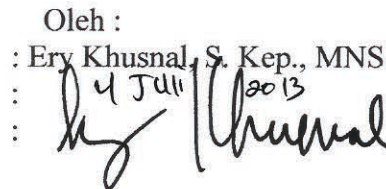 Oleh :
: Ery Khusnal, S. Kep., MNS
: 4 Juli 2013
: Khusnal